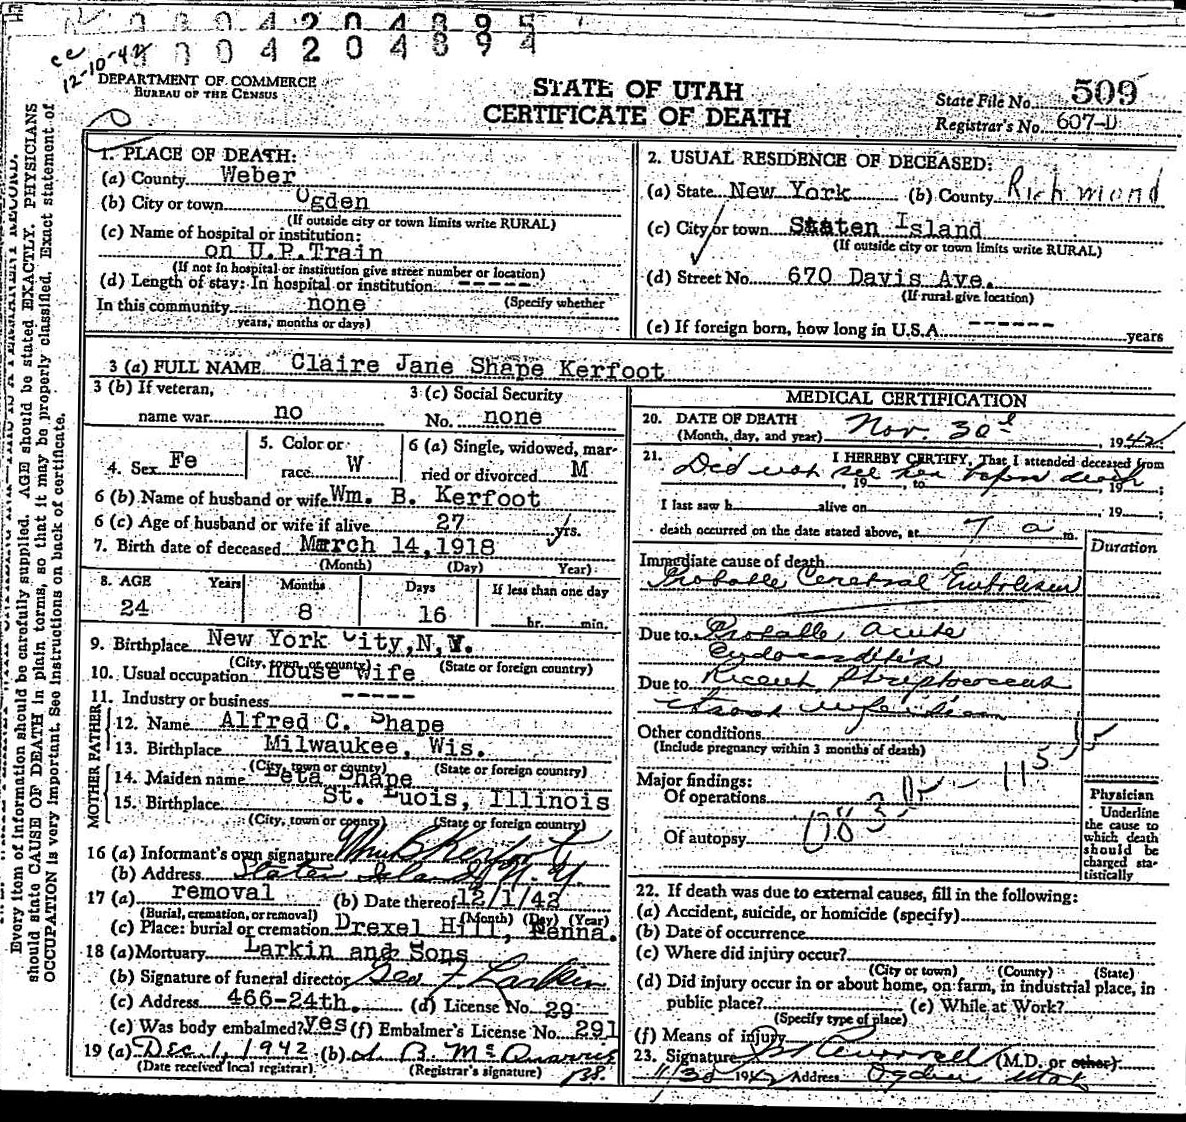 0 0 0 4 2 0 4 8 9 5
0 0 4 2 0 4 8 9 4
cc
12-10-42
DEPARTMENT OF COMMERCE
BUREAU OF THE CENSUS
STATE OF UTAH
CERTIFICATE OF DEATH
State File No. 509
Registrar's No. 607-D
Every item of information should be carefully supplied. AGE should be stated EXACTLY. PHYSICIANS
should state CAUSE OF DEATH in plain terms, so that it may be properly classified. Exact statement of
OCCUPATION is very important. See instructions on back of certificate.
1. PLACE OF DEATH:
(a) County Weber
(b) City or town Ogden
(If outside city or town limits write RURAL)
(c) Name of hospital or institution:
on U.P.Train
(If not in hospital or institution give street number or location)
(d) Length of stay: In hospital or institution -----
In this community none (Specify whether
years, months or days)
2. USUAL RESIDENCE OF DECEASED:
(a) State New York (b) County Richmond
(c) City or town Staten Island
(If outside city or town limits write RURAL)
(d) Street No. 670 Davis Ave.
(If rural give location)
(e) If foreign born, how long in U.S.A. ------ years
3 (a) FULL NAME Claire Jane Shape Kerfoot
3 (b) If veteran,
name war no
3 (c) Social Security
No. none
4. Sex Fe
5. Color or
race W
6 (a) Single, widowed, mar-
ried or divorced M
6 (b) Name of husband or wife Wm. B. Kerfoot
6 (c) Age of husband or wife if alive 27 yrs.
7. Birth date of deceased March 14,1918
(Month) (Day) Year)
8. AGE Years Months Days If less than one day
24 8 16 hr. min.
9. Birthplace New York City,N,Y.
(City, town or county) (State or foreign country)
10. Usual occupation House Wife
11. Industry or business -----
FATHER
12. Name Alfred C. Shape
13. Birthplace Milwaukee, Wis.
(City, town or county) (State or foreign country)
MOTHER
14. Maiden name Meta Shape
15. Birthplace St. Luois, Illinois
(City, town or county) (State or foreign country)
16 (a) Informant's own signature Wm B Kerfoot
(b) Address Staten Island N.Y.
17 (a) removal (b) Date thereof 12/1/42
(Burial, cremation, or removal) (Month) (Day) (Year)
(c) Place: burial or cremation Drexel Hill, Penna.
18 (a) Mortuary Larkin and Sons
(b) Signature of funeral director Geo F Larkin
(c) Address 466-24th. (d) License No. 29
(e) Was body embalmed? yes (f) Embalmer's License No. 291
19 (a) Dec. 1, 1942 (b)
(Date received local registrar) (Registrar's signature)
MEDICAL CERTIFICATION
20. DATE OF DEATH
(Month, day, and year) Nov. 30th, 1942
21. I HEREBY CERTIFY, That I attended deceased from
Did not see her before death
, 19 , to , 19 ;
I last saw h alive on , 19 ;
death occurred on the date stated above, at 7 a m.
Duration
Immediate cause of death
Probable Cerebral Embolism
Due to Probable acute
Endocarditis
Due to Recent Streptococcus
throat infection
Other conditions
(Include pregnancy within 3 months of death)
Major findings:
Of operations
Of autopsy
Physician
Underline
the cause to
which death
should be
charged sta-
tistically
22. If death was due to external causes, fill in the following:
(a) Accident, suicide, or homicide (specify)
(b) Date of occurrence
(c) Where did injury occur?
(City or town) (County) (State)
(d) Did injury occur in or about home, on farm, in industrial place, in
public place? (e) While at Work?
(Specify type of place)
(f) Means of injury
23. Signature (M.D. or other)
11/30 1942 Address Ogden Utah